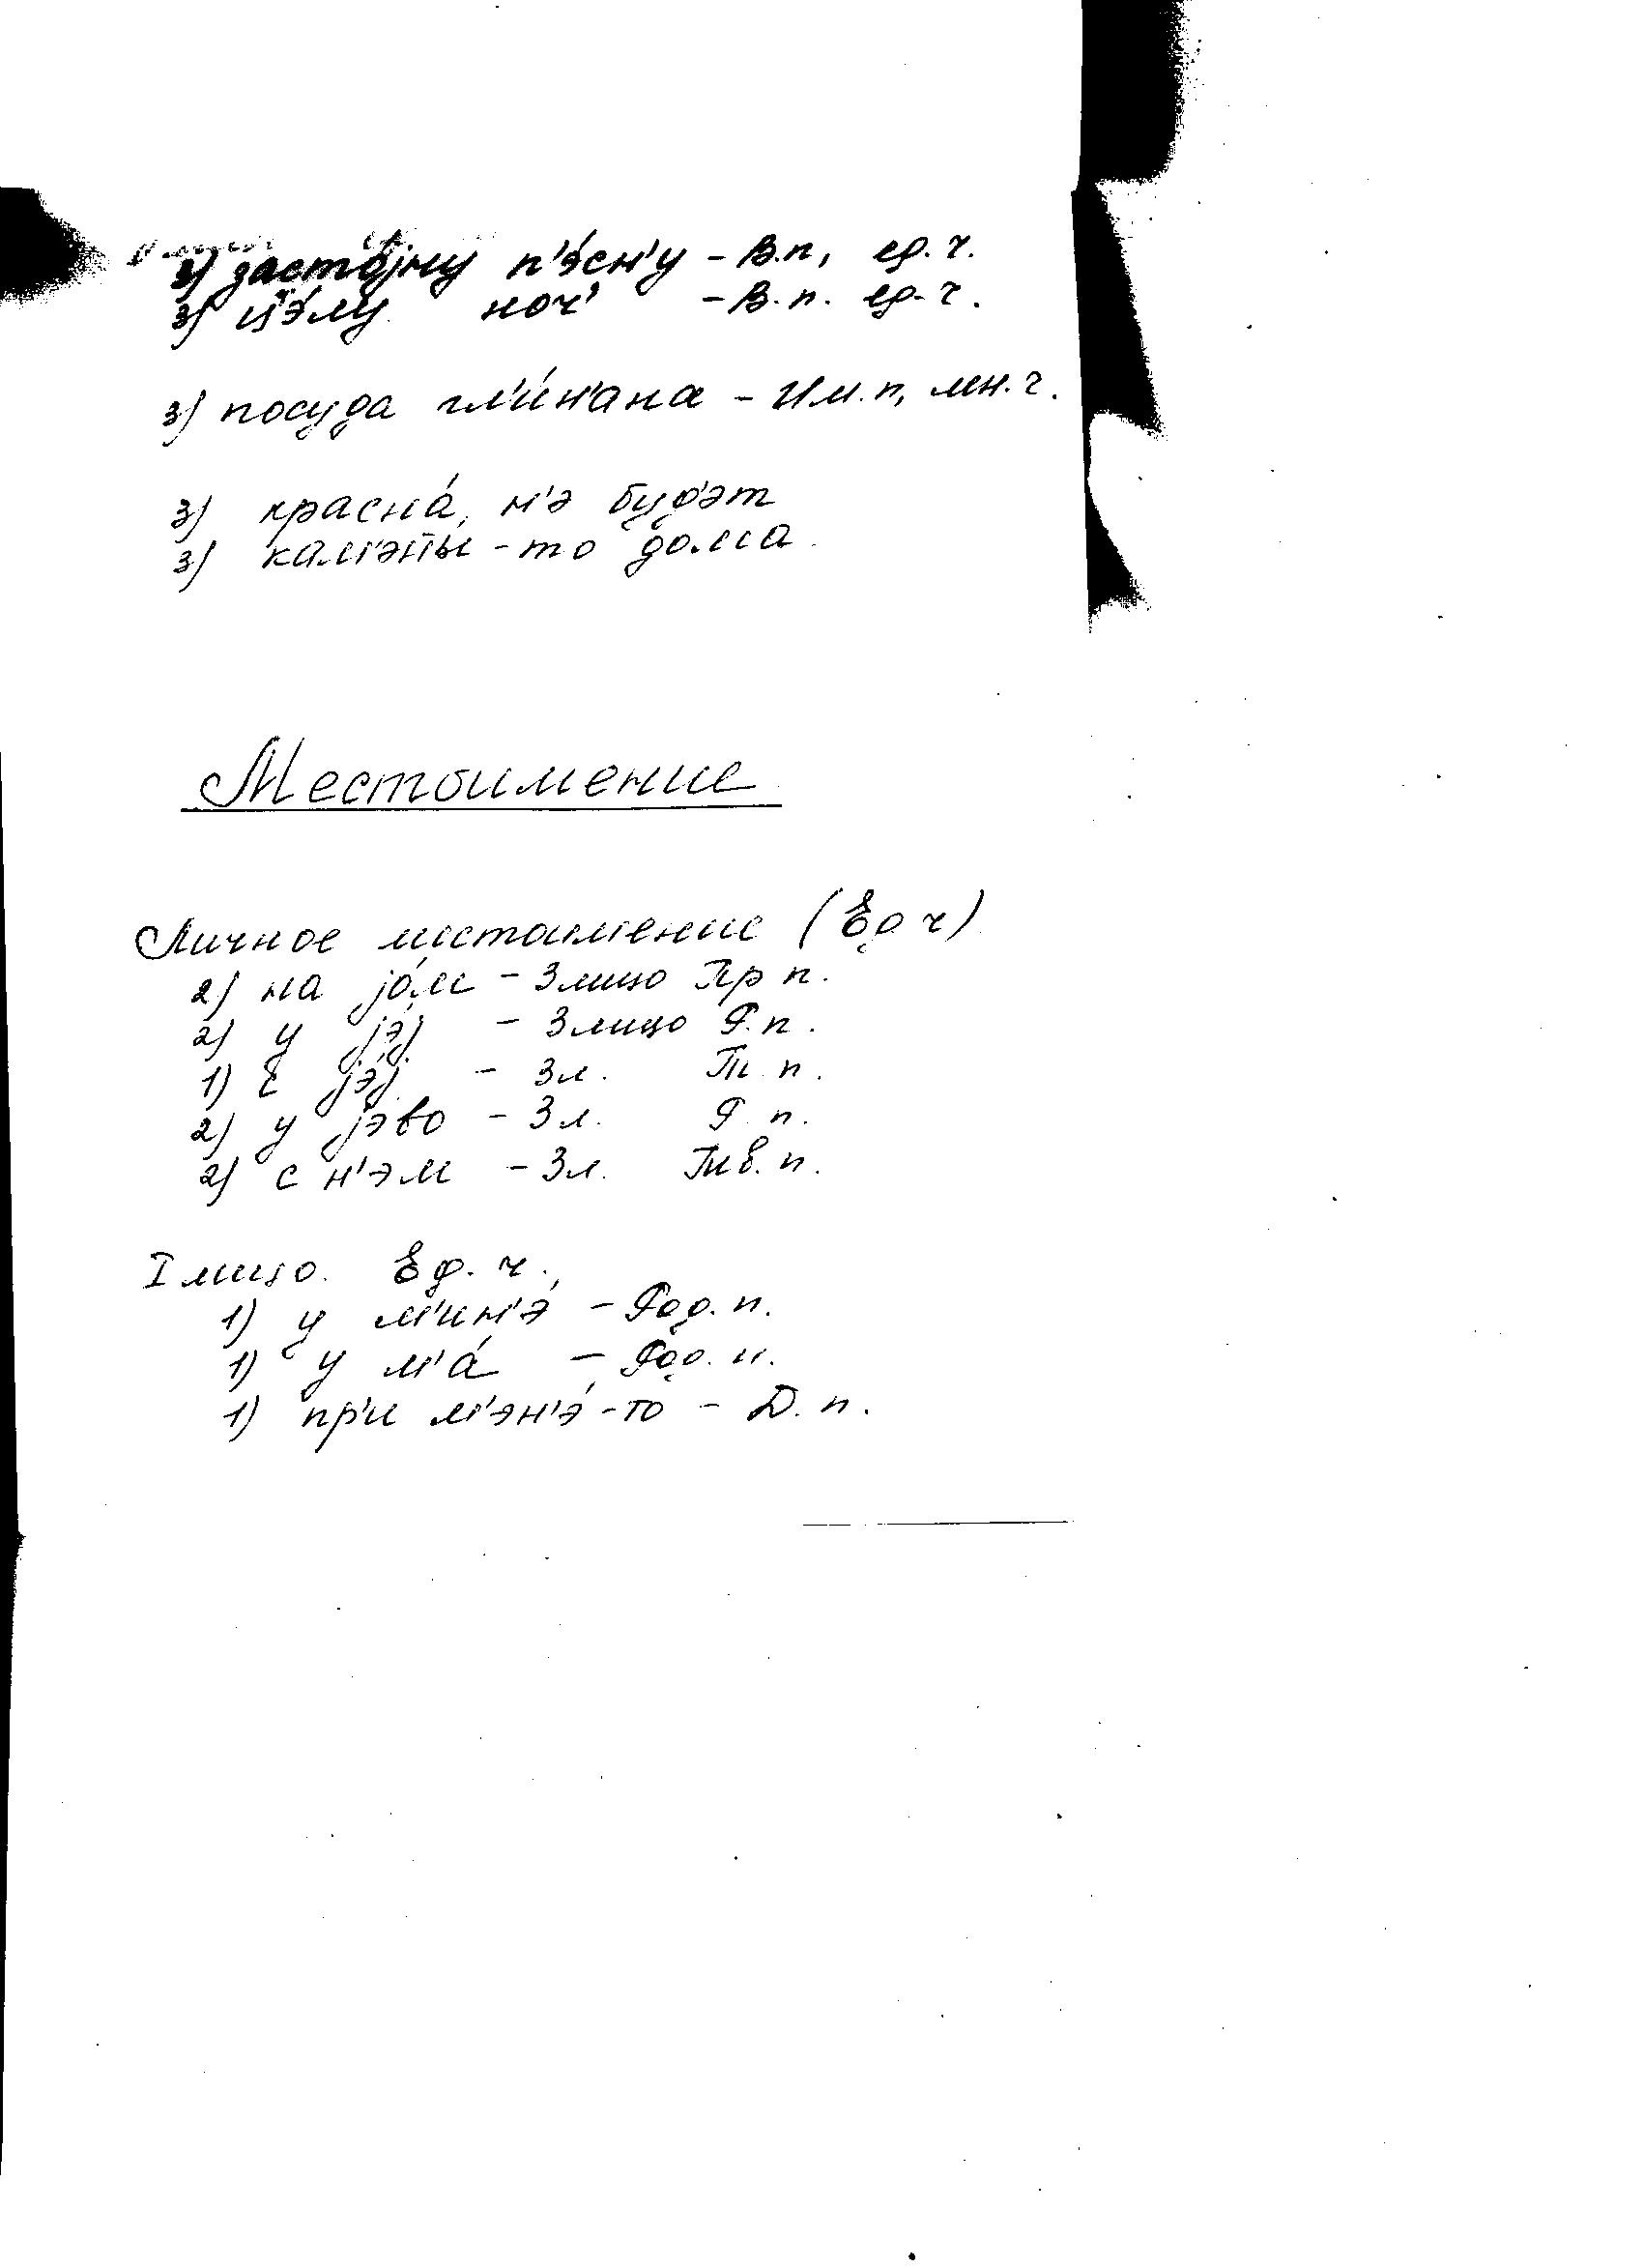 3) засто́јну п'э́сн'у - В.п, ед.ч.
3) цэ́лу ноч' - В.п. ед.ч.
3) посуда гл'и́н'ана - Им.п, мн.ч.
3) красна́, н'э буд'эт
3) кам'эны-то дома
Местоимение
Личное местоимение (Ед ч)
2) на јо́м - 3 лицо Пр п.
2) у јэ́ј - 3 лицо Р.п.
1) с јэ́ј - 3 л. Т. п.
2) у јэво - 3 л. Р. п.
2) с н'эм - 3 л. Тв. п.
I лицо. Ед. ч.
1) у м'ин'э́ - Род. п.
1) у м'а́ - Род. п.
1) пр'и м'эн'э́-то - Д. п.